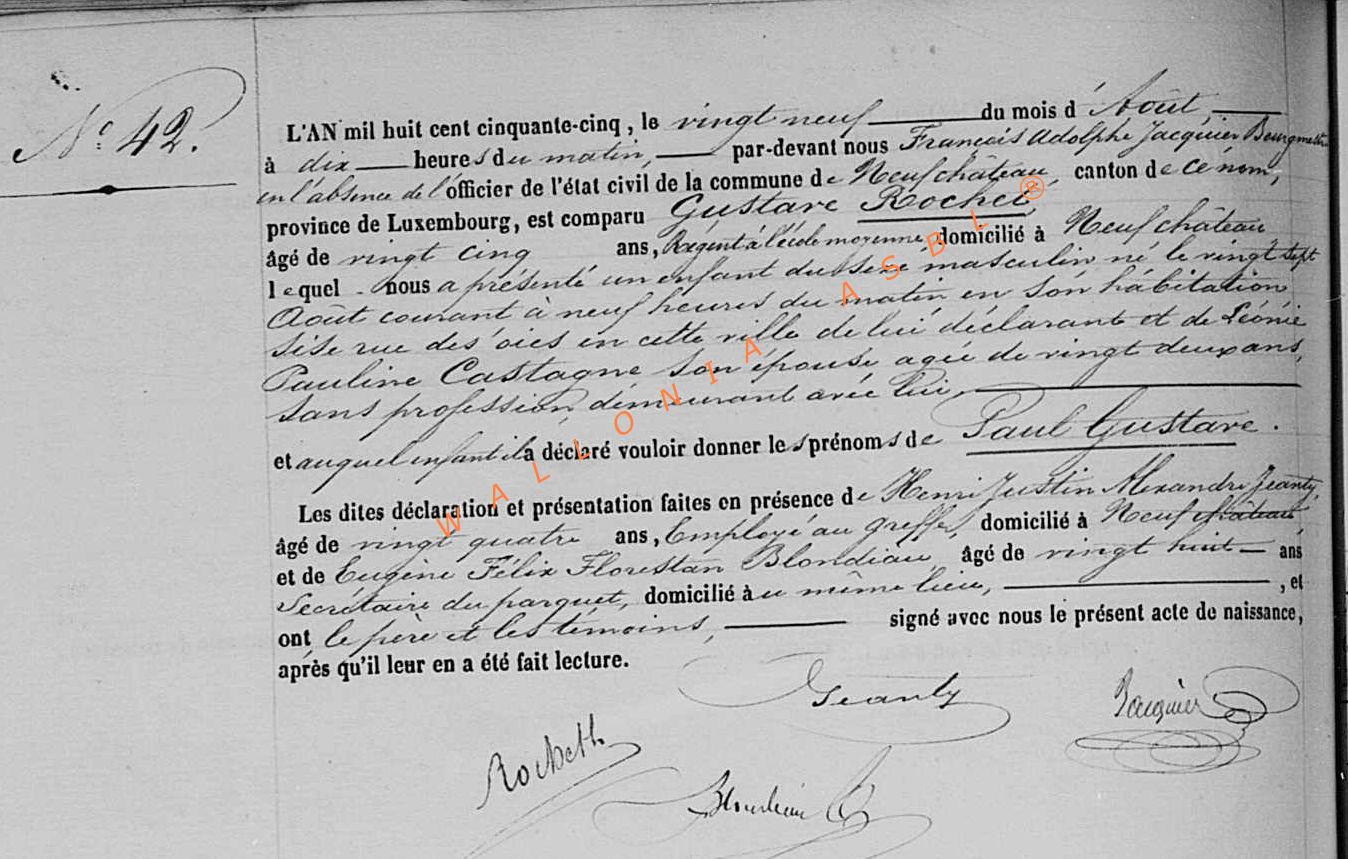 N° 42.
L'AN mil huit cent cinquante-cinq, le vingt neuf du mois d'Août,
à dix heures du matin, par-devant nous François Adolphe Jacquier Bourgmestre
en l'absence de l'officier de l'état civil de la commune de Neufchâteau, canton de ce nom,
province de Luxembourg, est comparu Gustave Rochet
âgé de vingt cinq ans, Régent à l'école moyenne, domicilié à Neufchâteau
lequel nous a présenté un enfant du sexe masculin né le vingt sept
Août courant à neuf heures du matin en son habitation
sise rue des oies en cette ville de lui déclarant et de Léonie
Pauline Castagne son épouse agée de vingt deux ans,
sans profession, demeurant avec lui,
et auquel enfant il a déclaré vouloir donner les prénoms de Paul Gustave.
Les dites déclaration et présentation faites en présence de Henri Justin Alexandre Jeanty,
âgé de vingt quatre ans, Employé au greffe, domicilié à Neufchâteau,
et de Eugène Félix Florestan Blondiau, âgé de vingt huit ans
Secrétaire du parquet, domicilié au même lieu, , et
ont, le père et les témoins, signé avec nous le présent acte de naissance,
après qu'il leur en a été fait lecture.
Jeanty
Jacquier
Blondiau
WALLONIA ASBL ®